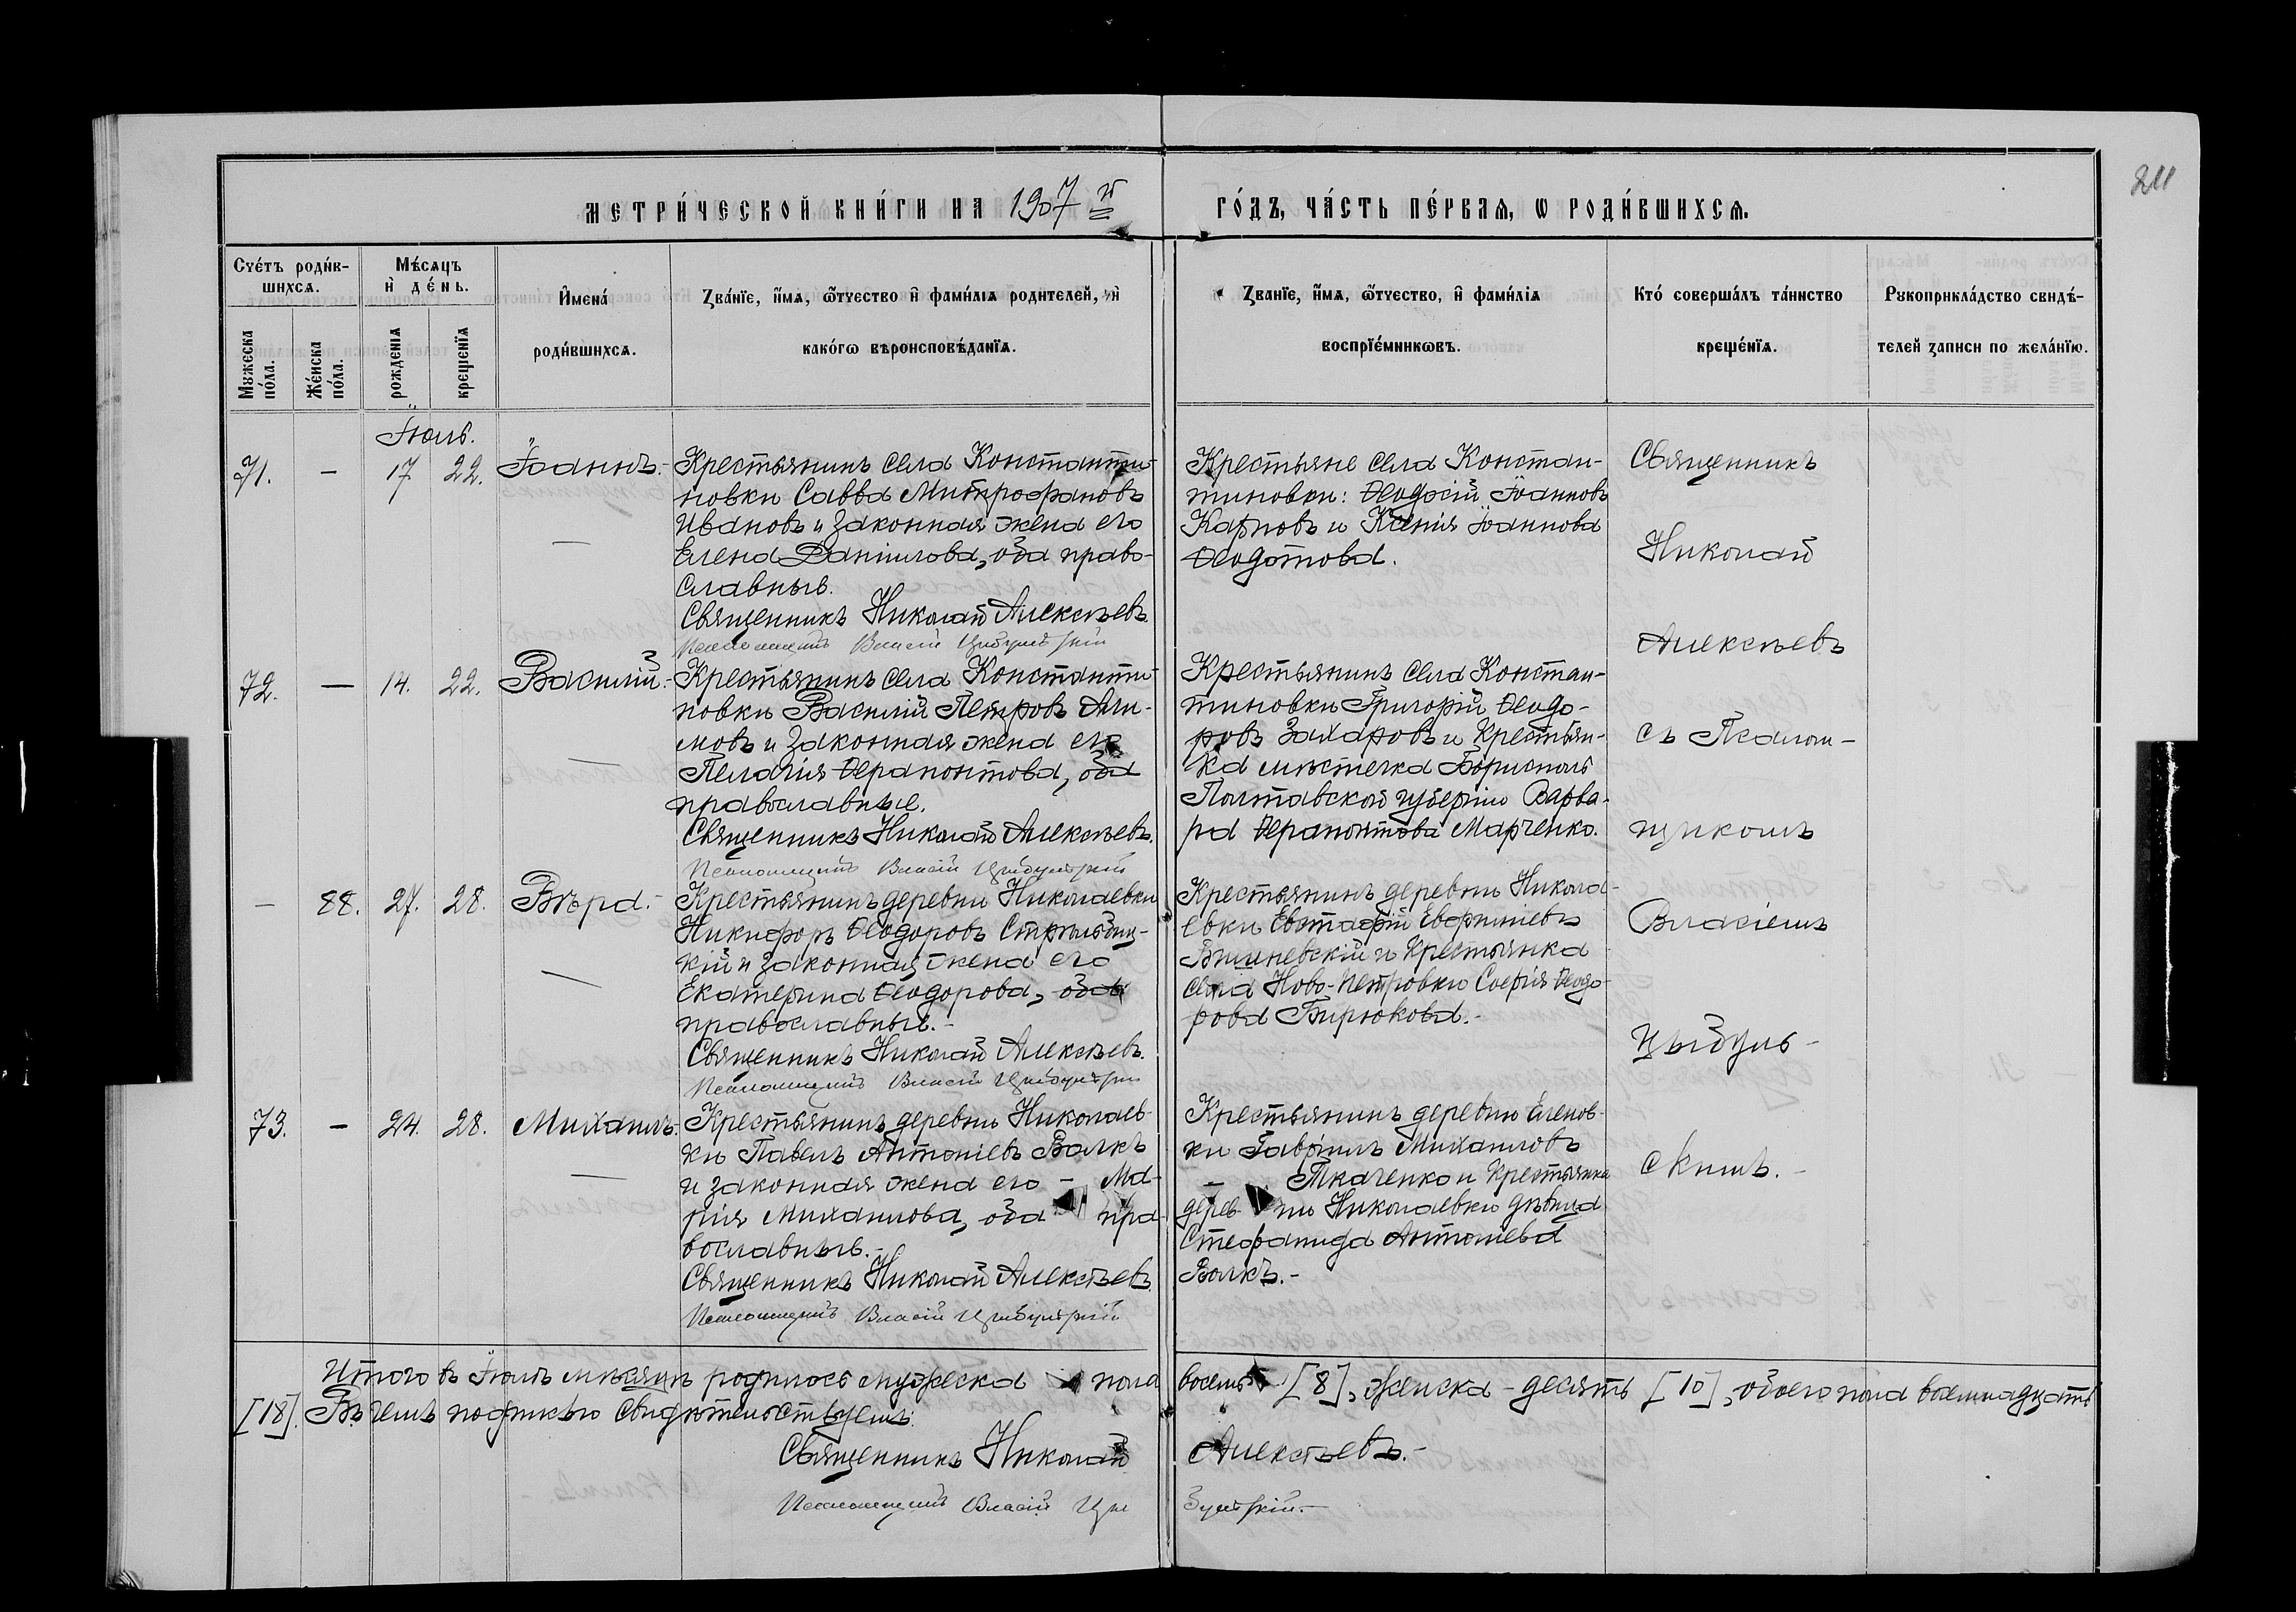 211
МЕТРИ́ЧЕСКОЙ КНИ́ГИ НА 1907 й ГО́ДЪ, ЧА́СТЬ ПЕ́РВАѦ, Ѡ РОДИ́ВШИХСѦ.
Счéтъ роди́в-
шихсѧ.
Мужеска по́ла.
Же́нска по́ла.
Мѣ́сѧцъ
и҆ де́нь.
рожденїѧ
крещенїѧ
И҆мена́
роди́вшихсѧ.
Зва́нїе, и҆́мѧ, ѻ҆́тчество и҆ фами́лїѧ родителей, и҆
како́гѡ вѣроисповѣ́данїѧ.
Званїе, и҆́мѧ, ѻ҆́тчество, и҆ фами́лїѧ
воспрїе́мниковъ.
Кто́ соверша́лъ та́инство
креще́нїѧ.
Рукоприкла́дство свидѣ́-
телей записи по жела́нїю.
Іюль.
71. — 17 22. Іоаннъ.
Крестьянинъ села Константи-
новки Савва Митрофановъ
Ивановъ и законная жена его
Елена Даніилова, оба право-
славные.
Священникъ Николай Алексѣевъ.
Псаломщикъ Власій Цыбульскій
Крестьяне села Констан-
тиновки: Ѳеодосій Іоанновъ
Карповъ и Ксенія Іоаннова
Ѳеодотова.
72. — 14. 22. Василій.
Крестьянинъ села Константи-
новки Василій Петровъ Али-
мовъ и законная жена его
Пелагія Ѳерапонтова, оба
православные.
Священникъ Николай Алексѣевъ.
Псаломщикъ Власій Цыбульскій
Крестьянинъ села Констан-
тиновки Григорій Ѳеодо-
ровъ Захаровъ и крестьян-
ка мѣстечка Борисполь
Полтавской губерніи Варва-
ра Ѳерапонтова Марченко.
— 88. 27. 28. Вѣра.
Крестьянинъ деревни Николаевки
Никифоръ Ѳеодоровъ Стрѣльбиц-
кій и законная жена его
Екатерина Ѳеодорова, оба
православные.-
Священникъ Николай Алексѣевъ.
Псаломщикъ Власій Цыбульскій
Крестьянинъ деревни Никола-
евки Евстафій Евфиміевъ
Вишневскій и крестьянка
села Ново-Петровки Софія Ѳеодо-
рова Бирюкова.-
73. — 24. 28. Михаилъ.
Крестьянинъ деревни Николаев-
ки Павелъ Антоніевъ Волкъ
и законная жена его - Ма-
рія Михаилова, оба пра-
вославные.-
Священникъ Николай Алексѣевъ
Псаломщикъ Власій Цыбульскій
Крестьянинъ деревни Еленов-
ки Гавріилъ Михаиловъ
— Ткаченко и крестьянка
дерев-ни Николаевки дѣвица
Стефанида Антоніева
Волкъ.-
Священникъ
Николай
Алексѣевъ
съ Псалом-
щикомъ
Власіемъ
Цыбуль-
скимъ.-
Итого въ Іюлѣ мѣсяцѣ родилось мужеска пола восемь [8], женска - десять [10], обоего пола восемнадцать
[18]. Въ чемъ подписью свидѣтельствуемъ:
Священникъ Николай Алексѣевъ.-
Псаломщикъ Власій Цыбульскій.-